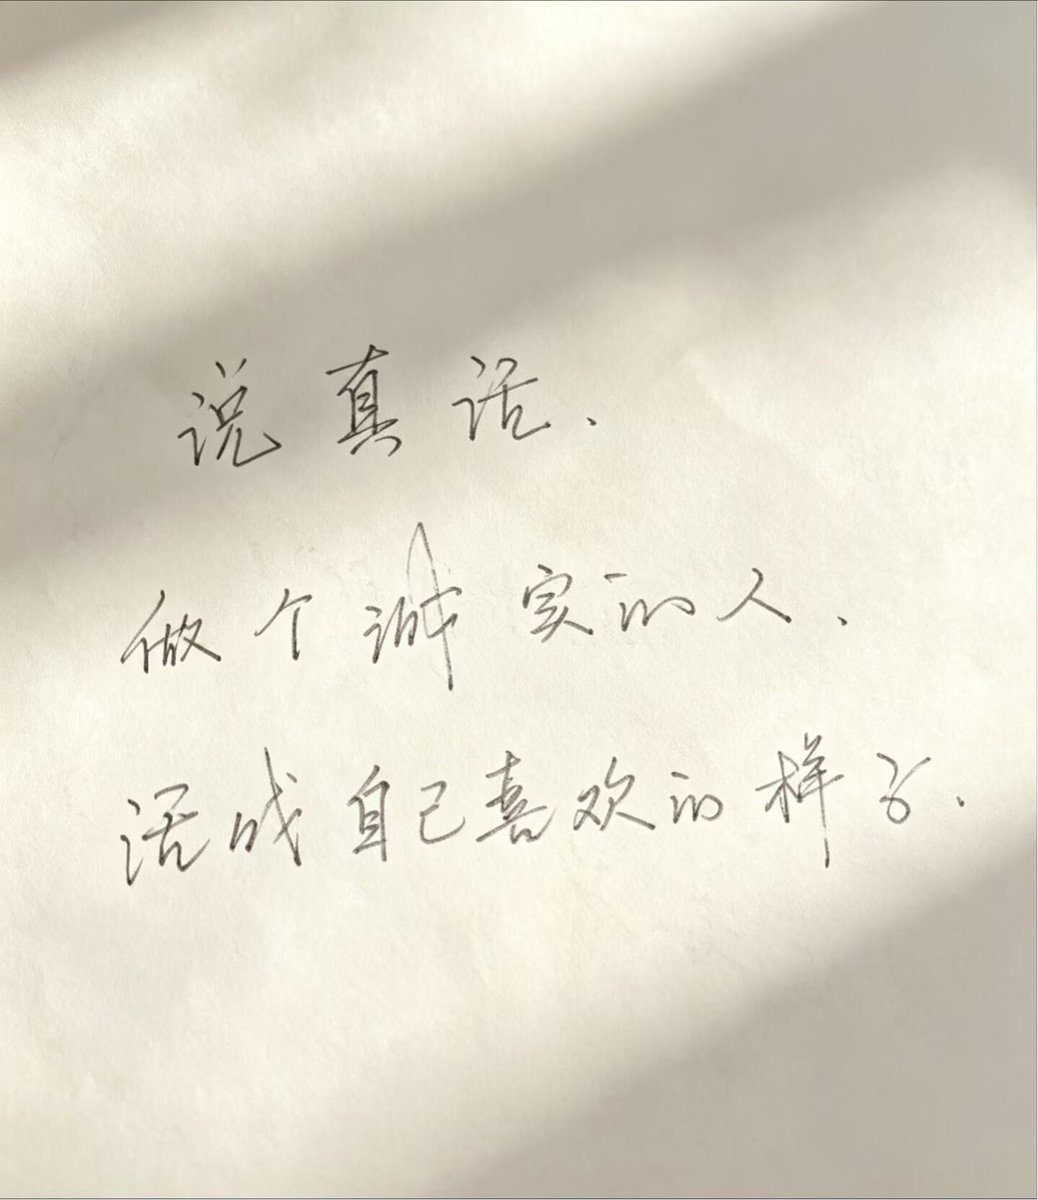 说真话.
做个诚实的人.
活成自己喜欢的样子.